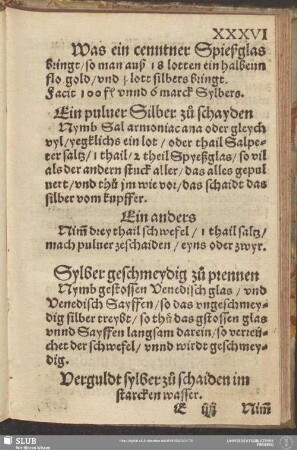 XXXVI
Was ein cenntner Spießglas
bringt/so man auß 18 lotten ein halbenn
flo. gold/vnd ½ lott silbers bringt.
Facit 100 fl vnnd 6 marck Sylbers.
Ein puluer Silber zů schayden
Nymb Sal armoniac ana oder gleych
vyl/yegklichs ein lot/oder thail Salpe-
ter saltz/1 thail/2 theil Spyeßglas/so vil
als der andern stuck aller/das alles gepul
uert/vnd thů jm wie vor/das schaidt das
silber vom kupffer.
Ein anders
Nim̃ drey thail schwefel/1 thail saltz/
mach puluer zeschaiden/eyns oder zwyr.
Sylber geschmeydig zů prennen
Nymb gestossen Venedisch glas/vnd
Venedisch Sayffen/so das vngeschmey-
dig silber treybt/so thů das gstossen glas
vnnd Sayffen langsam darein/so verreü-
chet der schwefel/vnnd wirdt geschmey-
dig.
Verguldt sylber zů schaiden im
starcken wasser.
E iiij Nim̃
SLUB
Wir führen Wissen.